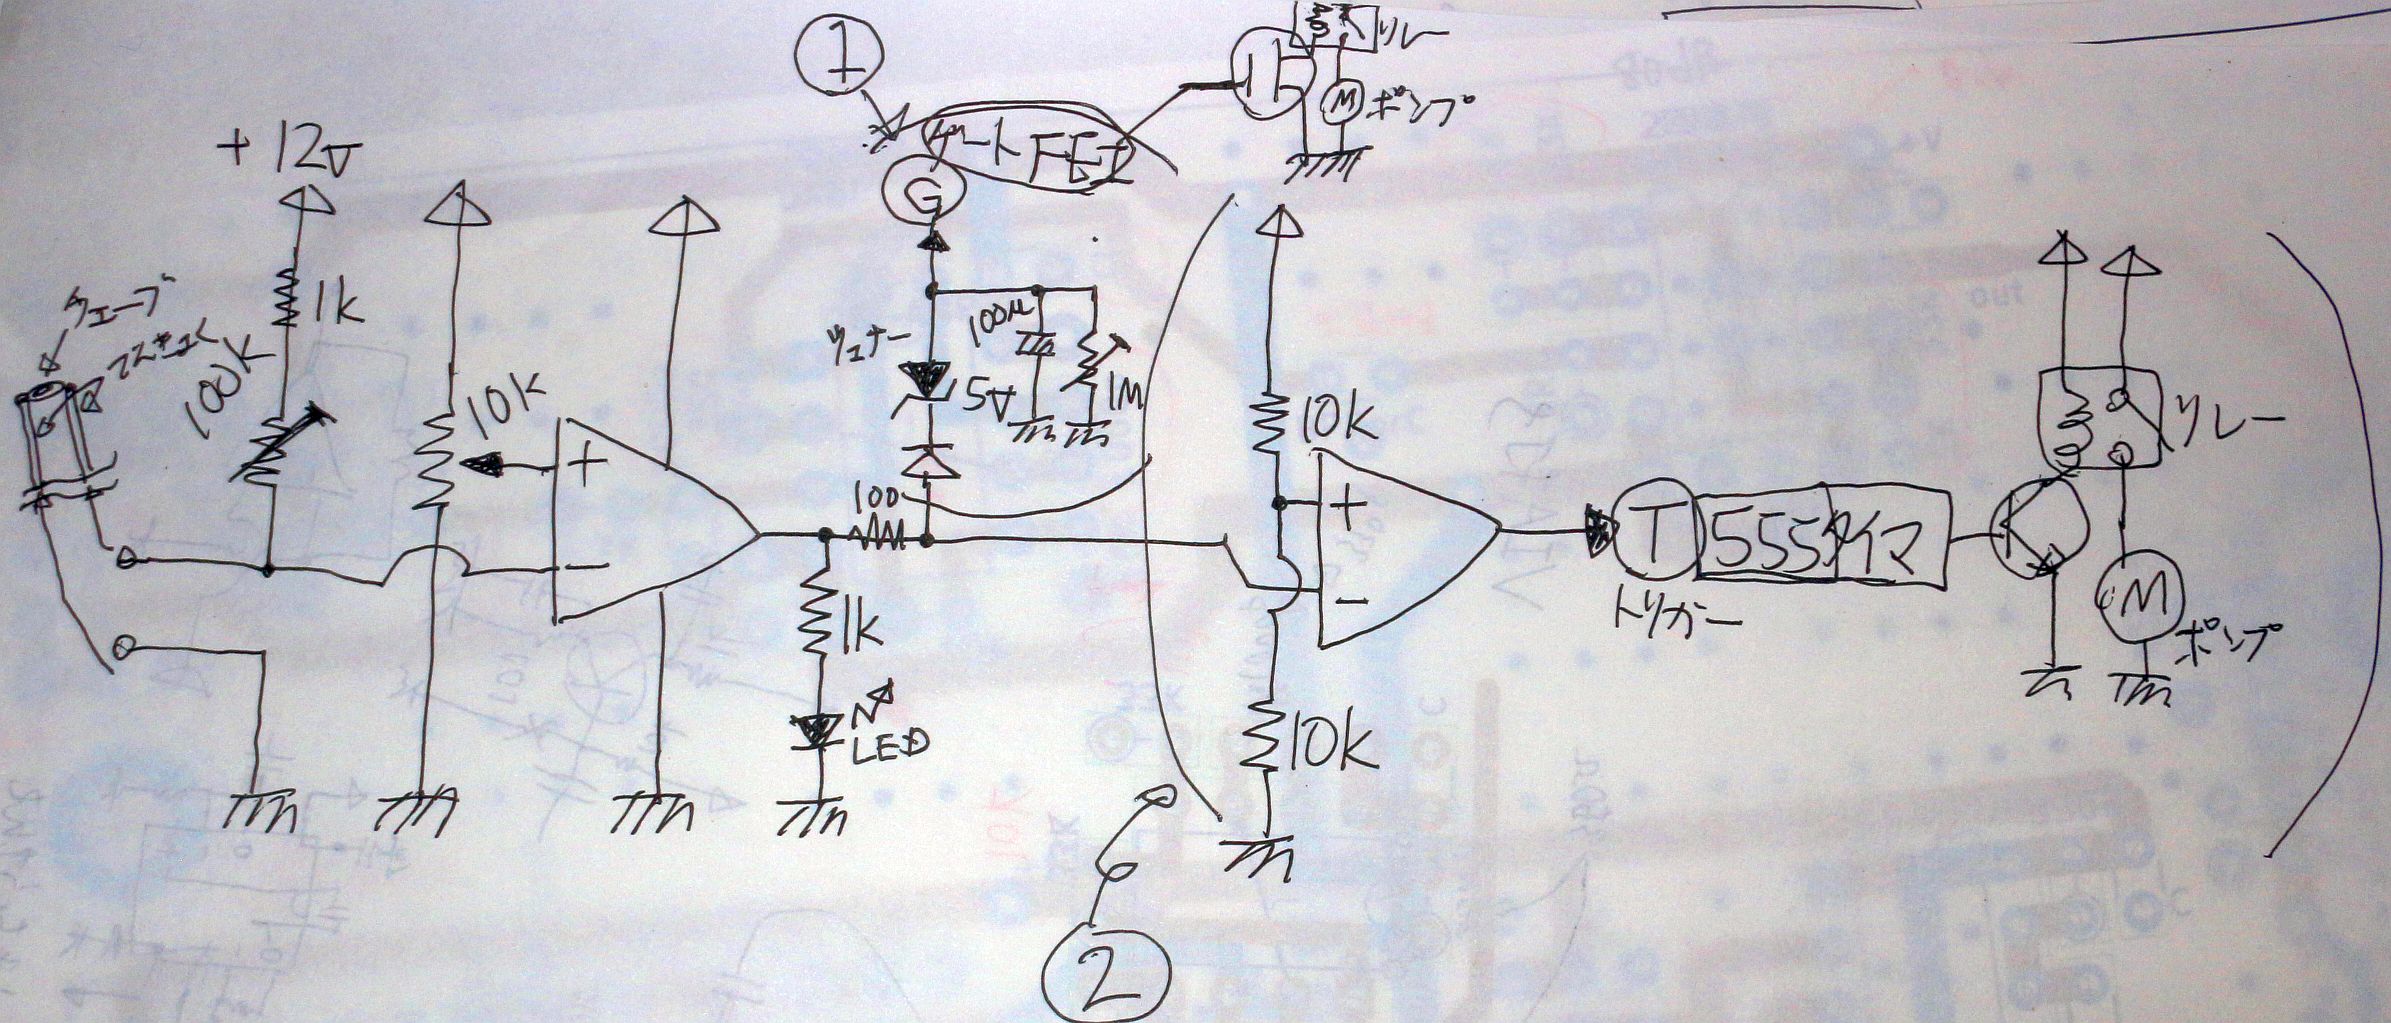 1
リレー
M
ポンプ
ゲートFET
G
+12V
1k
100k
10k
+
−
ツェナー
5V
100μ
1M
100
1k
LED
10k
+
−
10k
T
555タイマ
トリガー
リレー
M
ポンプ
2